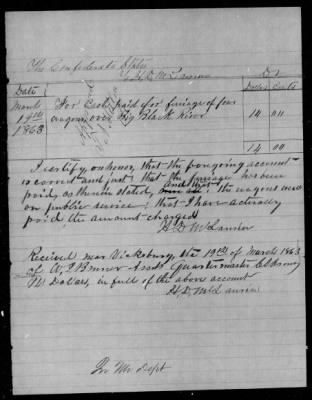 The Confederate States
To H. D. McLaurin Dr
Date Dollars Cents
March For Cash paid for ferriage of four
14th wagons over Big Black River 14 00
1863
14 00
I certify, on honor, that the foregoing account
is correct and just, that the ferriage has been
and that
paid, as therein stated, the wagons were
on public service; that I have actually
paid the amount charged
H. D. McLaurin
Received near Vicksburg, the 19th of March 1863
of Asst. Quartermaster
Dollars, in full of the above account
H. D. McLaurin